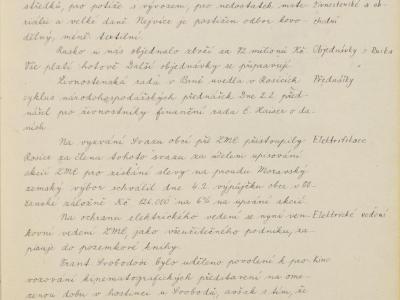 středků, pro potíže s vývozem, pro nedostatek mate- Živnostenské a ob-
riálu a velké daně Nejvíce je postižen odbor kovo- chodní
dělný, méně textilní.
Rusko u nás objednalo zboží za 72 milionů Kč Objednávky z Ruska
Vše platí hotově Další objednávky se připravují
Živnostenská rada v Brně uvedla v Rosicích Přednášky
cyklus národohospodářských přednášek Dne 22. před-
nášel pro živnostníky finanční rada C. Kaiser o da-
ních
Na vyzvání Svazu obcí při ZME přistoupily Elektrifikace
Rosice za člena tohoto svazu za účelem upisování
akcií ZME pro získání slevy na proudu Moravský
zemský výbor schválil dne 4.2. výpůjčku obce u Ob-
čanské záložny Kč 126.000 na 6% na upsání akcií.
Na ochranu elektrického vedení se nyní ven- Elektrické vedení
kovní vedení ZME, jako všeužitečného podniku, za-
pisuje do pozemkové knihy.
Frant. Svobodovi bylo uděleno povolení k pro- Kino
vozování kinematografických představení na ome-
zenou dobu v hostinci u Svobodů, avšak s tím, že